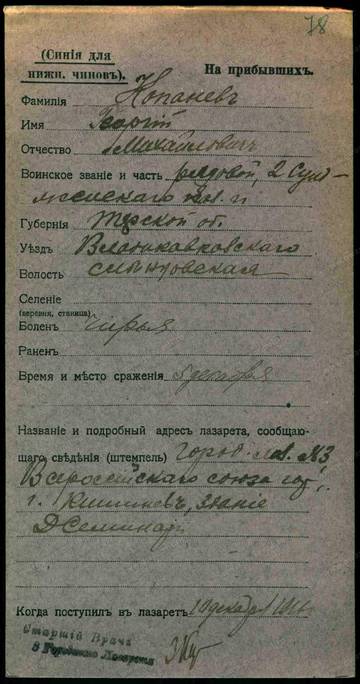 78
(Синія для
нижн. чиновъ).
На прибывшихъ.
Фамилія Копаневъ
Имя Георгій
Отчество Михайловичъ
Воинское званіе и часть рядовой, 2 Сун-
женскаго
Губернія Терской об.
Уѣздъ Владикавказскаго
Волость
Селеніе
(деревня, станица)
Боленъ чирья
Раненъ
Время и мѣсто сраженія 5 декабря
Названіе и подробный адресъ лазарета, сообщаю-
щаго свѣдѣнія (штемпель) Город. лаз. №3
Всероссійскаго союза гор.
г. Кишиневъ, зданіе
Д Семинар
Когда поступилъ въ лазаретъ 10 декабря 1916
Старшій Врачъ
3 Городского Лазарета